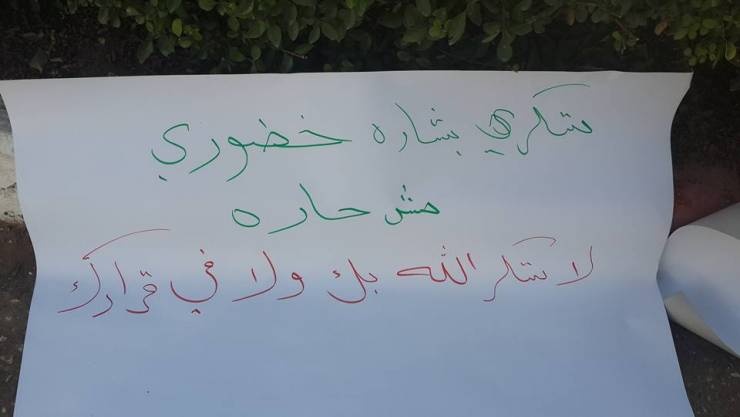 بشاره خضوري
مش حاره
لا الله بك ولا في قرارك